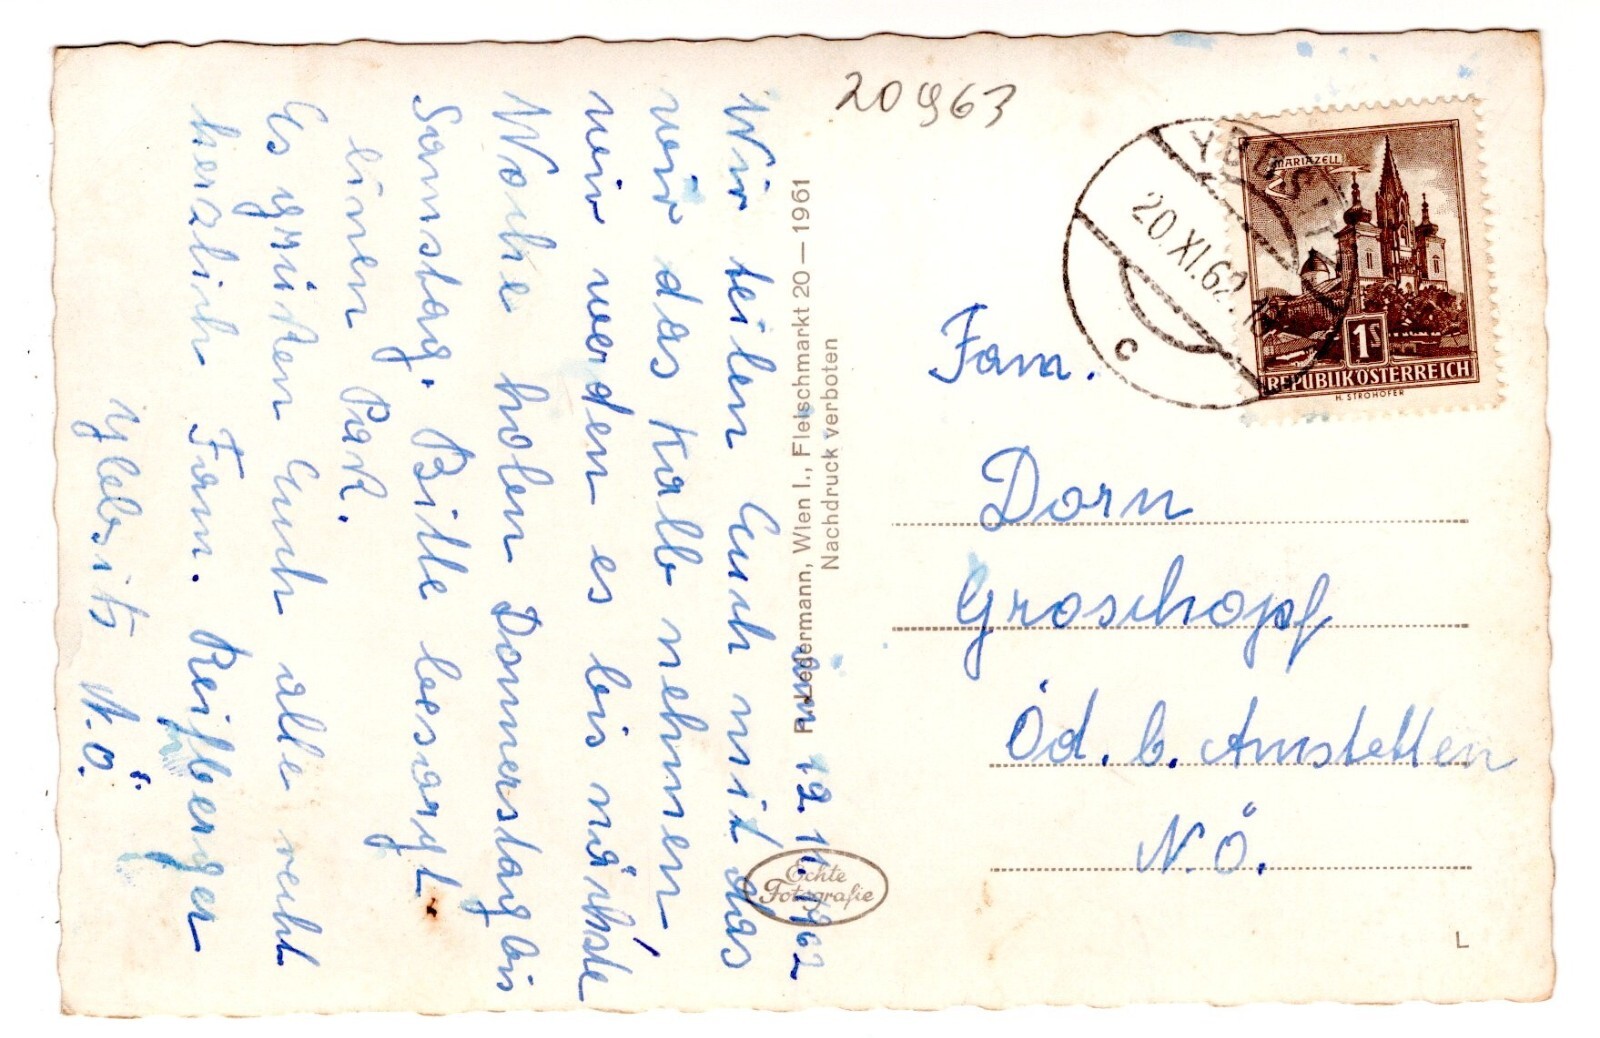 am 19. 11. 1962
Wir teilen Euch mit das
wir das Kalb nehmen,
wir werden es bis nächste
Woche holen Donnerstag bis
Samstag. Bitte besorgt
einen Paß.
Es grüßen Euch alle recht
herzlich Fam. Reifberger
Ybbsitz N.Ö.
P. Ledermann, Wien I., Fleischmarkt 20 — 1961
Nachdruck verboten
Echte
Fotografie
20963
YBBSITZ
20.XI.62.18
c
MARIAZELL
1S
REPUBLIK ÖSTERREICH
H. STROHOFER
Fam.
Dorn
Groschopf
Öd. b. Amstetten
N.Ö.
L